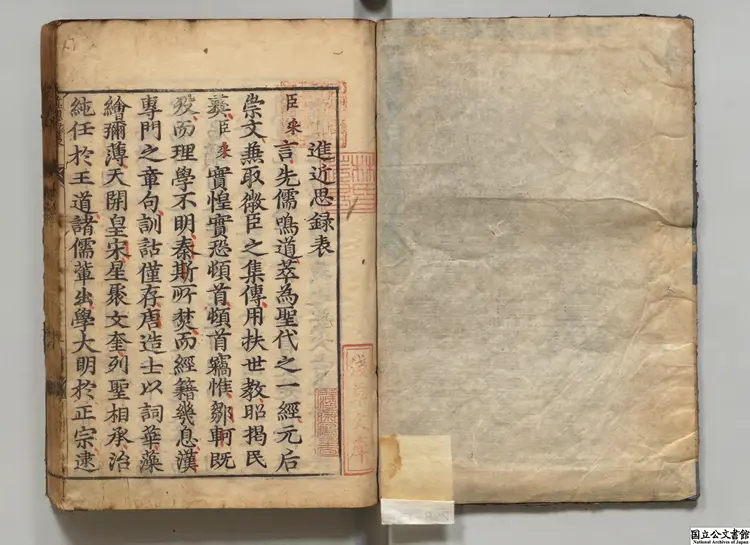 進近思録表
臣采言先儒鳴道萃為聖代之一經元后
崇文兼取微臣之集傳用扶世教昭揭民
彝臣采實惶實恐頓首頓首竊惟鄒軻既
歿而理學不明秦斯所焚而經籍幾息漢
專門之章句訓詁僅存唐造士以詞華藻
繪彌薄天開皇宋星聚文奎列聖相承治
純任於王道諸儒輩出學大明於正宗逮
淺草文庫
国立公文書館
National Archives of Japan